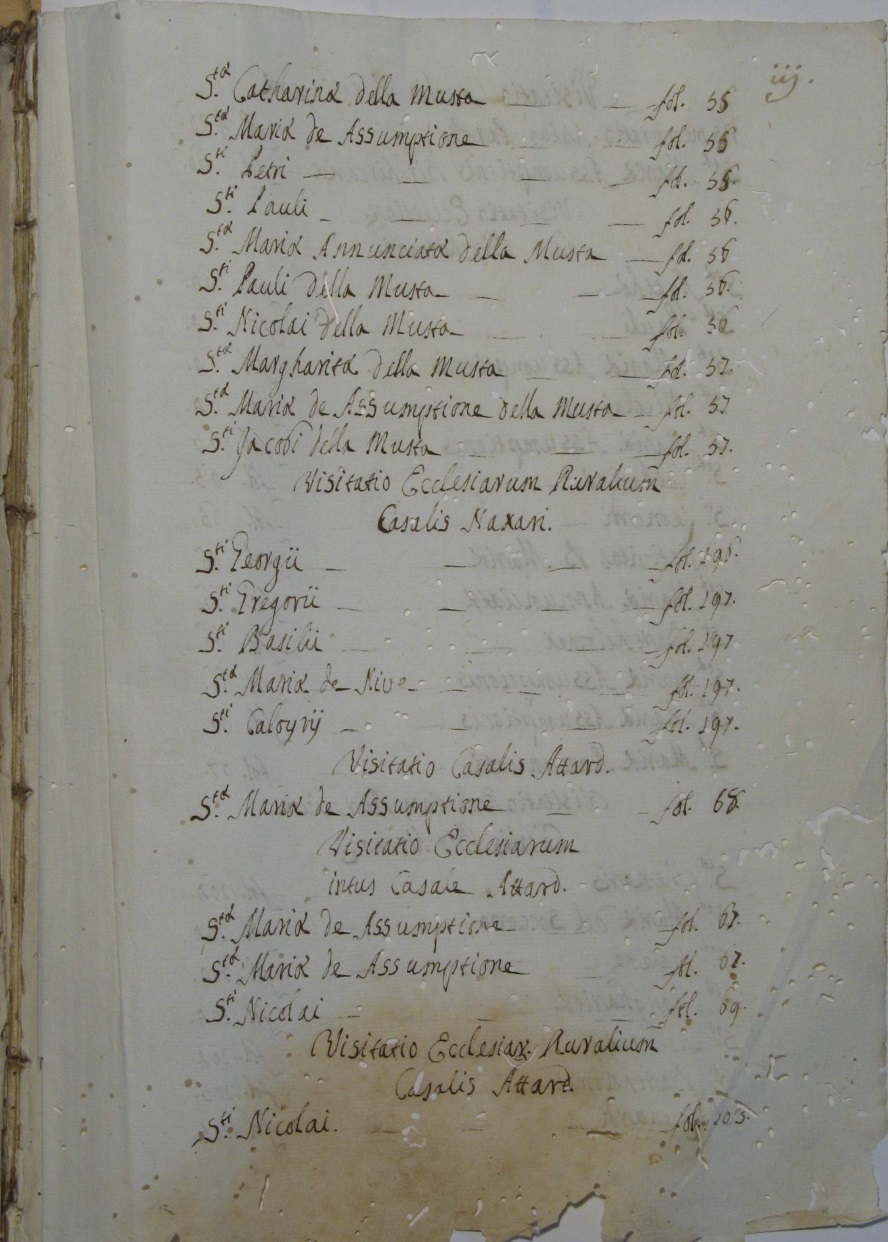 iij.
S.ta Catharina della Musta fol. 55
S.ta Maria de Assumptione fol. 55
S.ti Petri fol. 55.
S.ti Pauli fol. 56.
S.ta Maria Annunciata della Musta fol. 56
S.ti Pauli della Musta fol. 56.
S.ti Nicolai della Musta fol. 56
S.ta Margharita della Musta fol. 57.
S.ta Maria de Assumptione della Musta fol. 57
S.ti Jacobi della Musta fol. 57.
Visitatio Ecclesiarum Ruralium
Casalis Naxari.
S.ti Georgii fol.
S.ti Gregorii fol. 197.
S.ti Basilii fol. 197
S.ta Maria de Nive fol. 197.
S.ti Caloyrij fol. 197.
Visitatio Casalis Attard.
S.ta Maria de Assumptione fol.
Visitatio Ecclesiarum
intus Casale Attard.
S.ta Maria de Assumptione fol.
S.ta Maria de Assumptione fol.
S.ti Nicolai fol. 69.
Visitatio Ecclesiar. Ruralium
Casalis Attard.
S.ti Nicolai. fol.